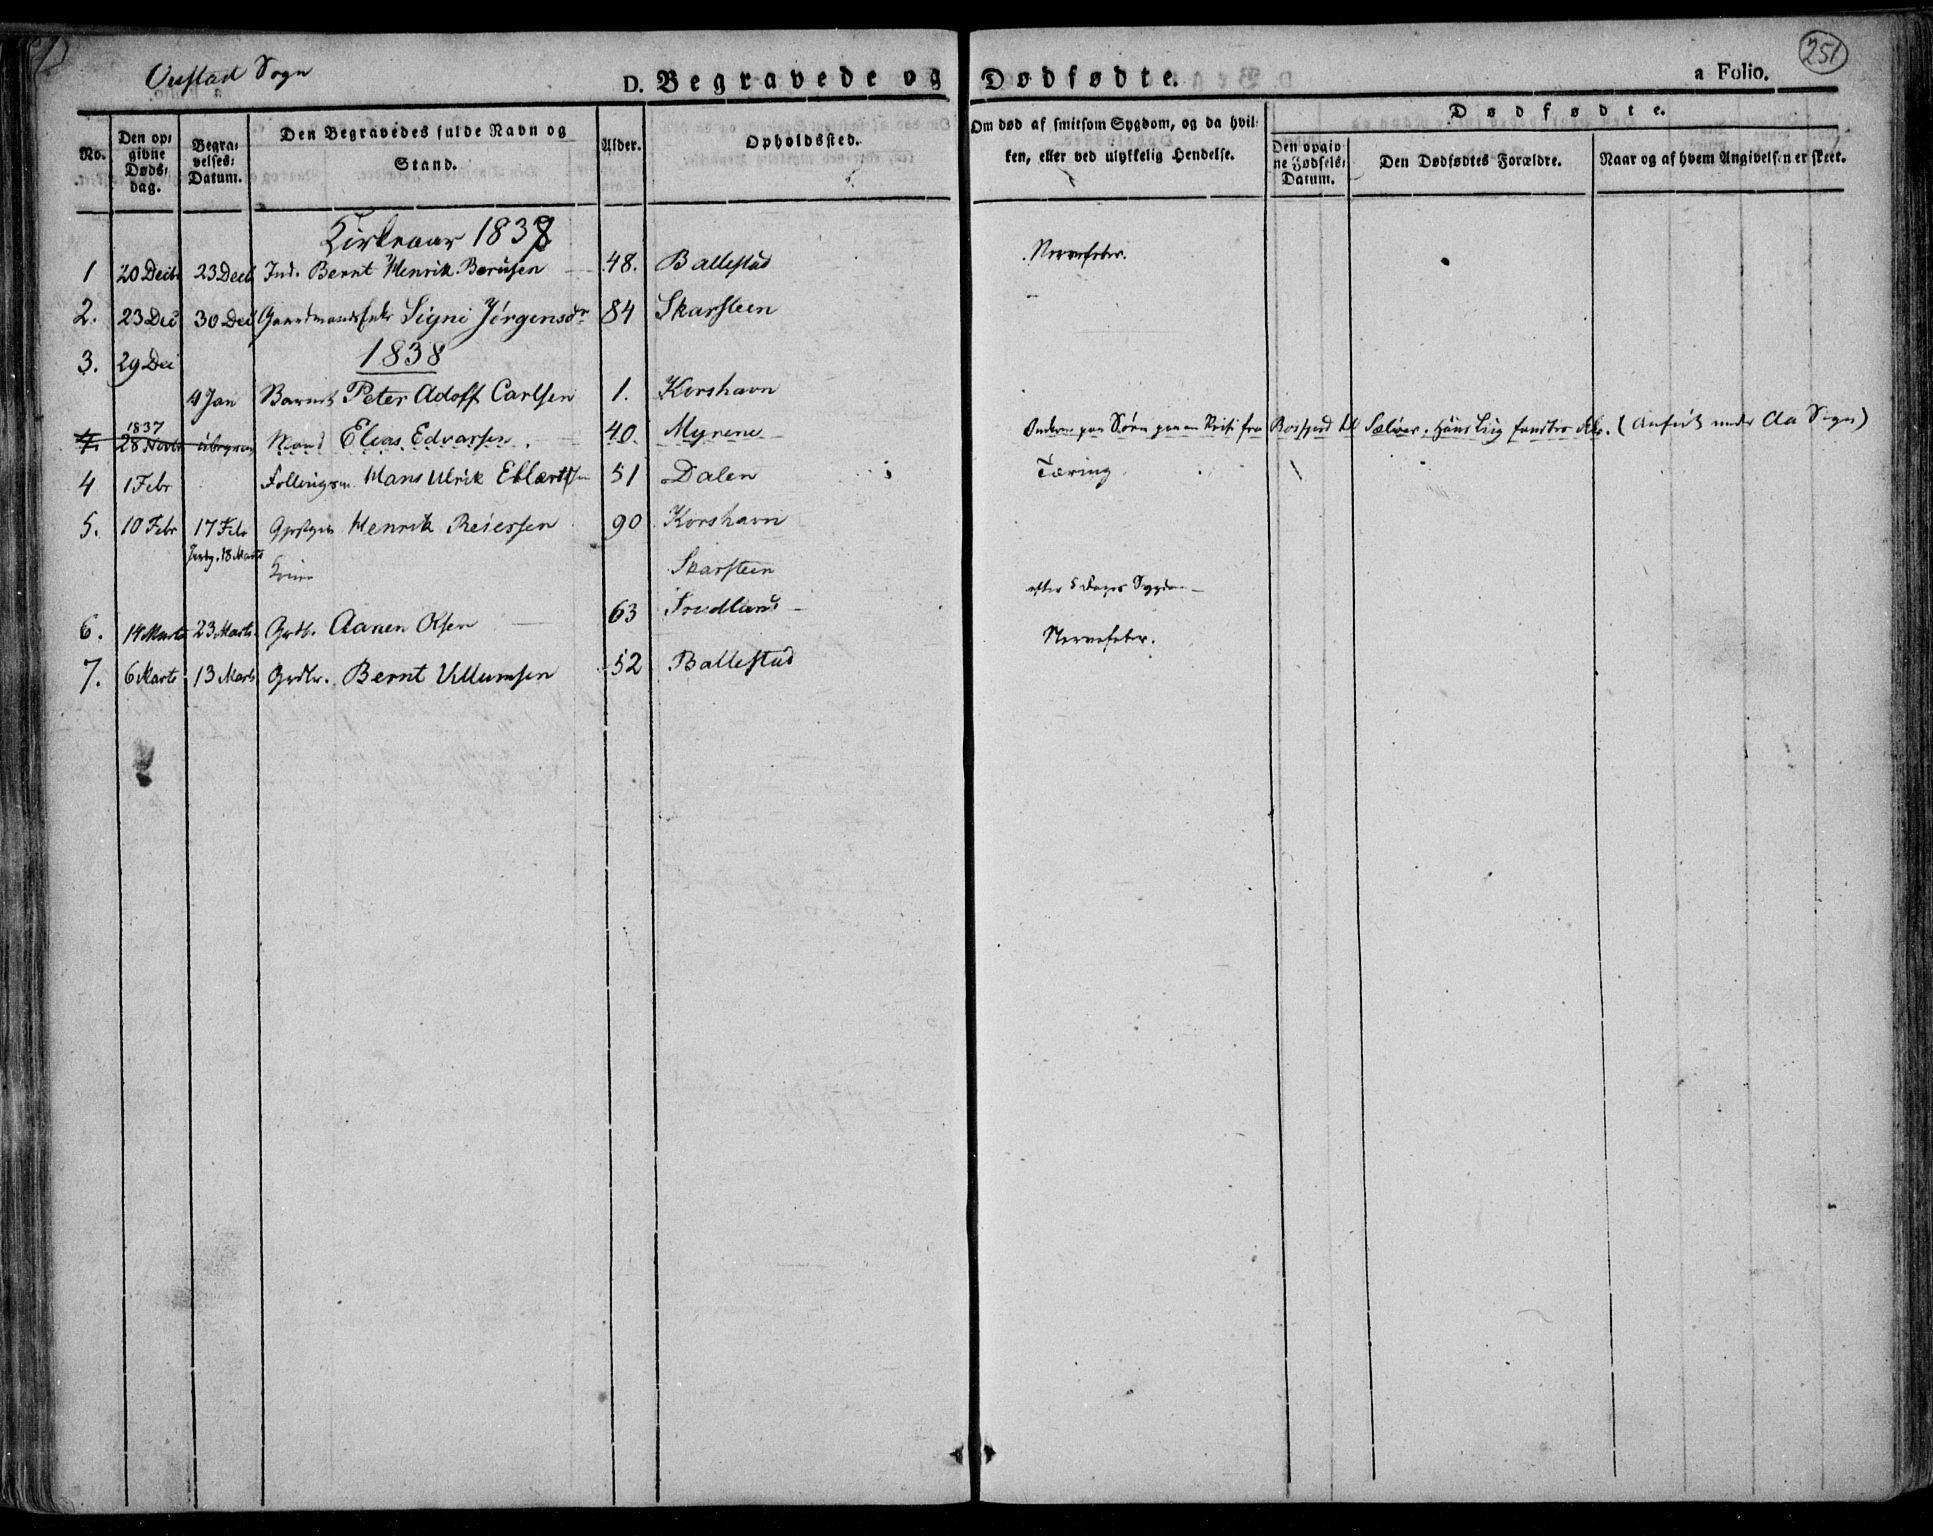 251
Sogn
D. Begravede og Dødfødte. a Folio.
No. Den opgivne Dødsdag. Begravelses: Datum. Den Begravedes fulde Navn og Stand. Alder. Opholdssted. Om død af smitsom Sygdom, og da hvilken, eller ved ulykkelig Hendelse. Dødfødte. Den opgivne Fødsels: Datum. Den Dødfødtes Forældre. Naar og af hvem Angivelsen er skeet.
Kirkeaar 1838
1 20 Decbr 23 Decb Ind. Bernt Henrik 48. Ballestad Nervefeber.
2. 23 Dec 30 Dec Signi Jörgensdr 84 Skarsteen
3. 29 Dec 1838
4 Jan Barnet Peter Adolf Carlsen 1. Korshavn
4. 1837 28 Novbr Mand Elias Edvarsen. 40. Myrene paa Søen paa en fra til Sælver. (Anført under Aa Sogn)
4 1 Febr Hans Ulrik 51 Dalen Tæring
5. 10 Febr 17 Feb Henrik Reiersen 90 Korshavn
18 Marts
Skarsteen
efter 5 Dages Sygdom
6. 14 Marts 23 Marts. Grdb. Aanen Olsen 63
Nervefeber.
7. 6 Marts 13 Marts Grdbr. Bernt Villumsen 52 Ballestad